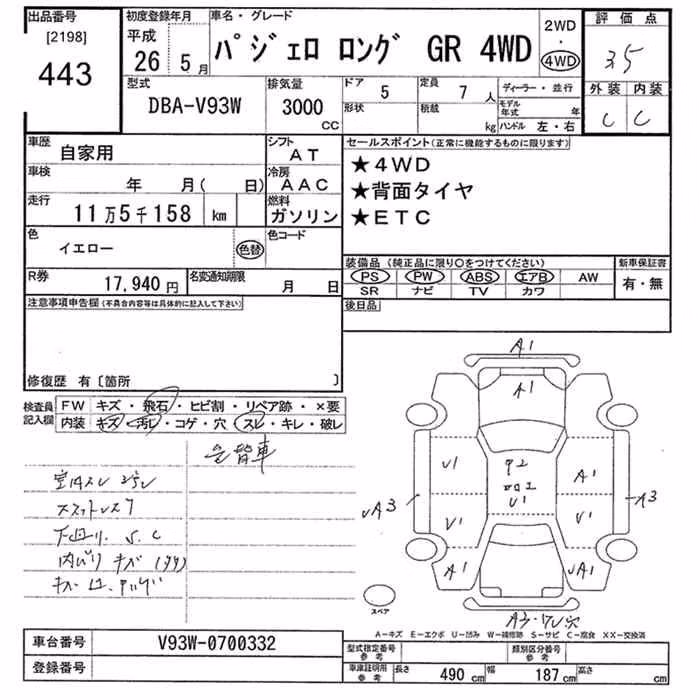 出品番号
[2198]
443
初度登録年月
平成
26 5月
車名・グレード
パジェロ ロング GR 4WD
2WD
・
4WD
評価点
3.5
外装 内装
C C
型式
DBA-V93W
排気量
3000
CC
ドア
5
形状
定員
7人
積載
kg
ディーラー・並行
モデル年式 年
ハンドル 左・右
車歴
自家用
シフト
AT
車検
年 月( 日)
冷房
AAC
走行
11万5千158 km
燃料
ガソリン
色
イエロー
色替
色コード
R券
17,940円
名変通知期限
月 日
セールスポイント(正常に機能するものに限ります)
★4WD
★背面タイヤ
★ETC
装備品(純正品に限り〇をつけてください)
PS PW ABS エアB AW
SR ナビ TV カワ
新車保証書
有・無
後日品
注意事項申告欄(不具合内容等は具体的に記入して下さい)
修復歴 有〔箇所 〕
検査員
記入欄
FW キズ・飛石・ヒビ割・リペア跡・×要
内装 キズ・汚レ・コゲ・穴・スレ・キレ・破レ
色替車
下回り S.C
A1
A1
U1
A1
U1
U1
U1
A1
UA1
UA3
A3
スペア
A-キズ E-エクボ U-凹み W-補修跡 S-サビ C-腐食 XX-交換済
車台番号
V93W-0700332
登録番号
型式指定番号
参考
類別区分番号
参考
車庫証明用
参考
長さ 490 cm
幅 187 cm
高さ cm